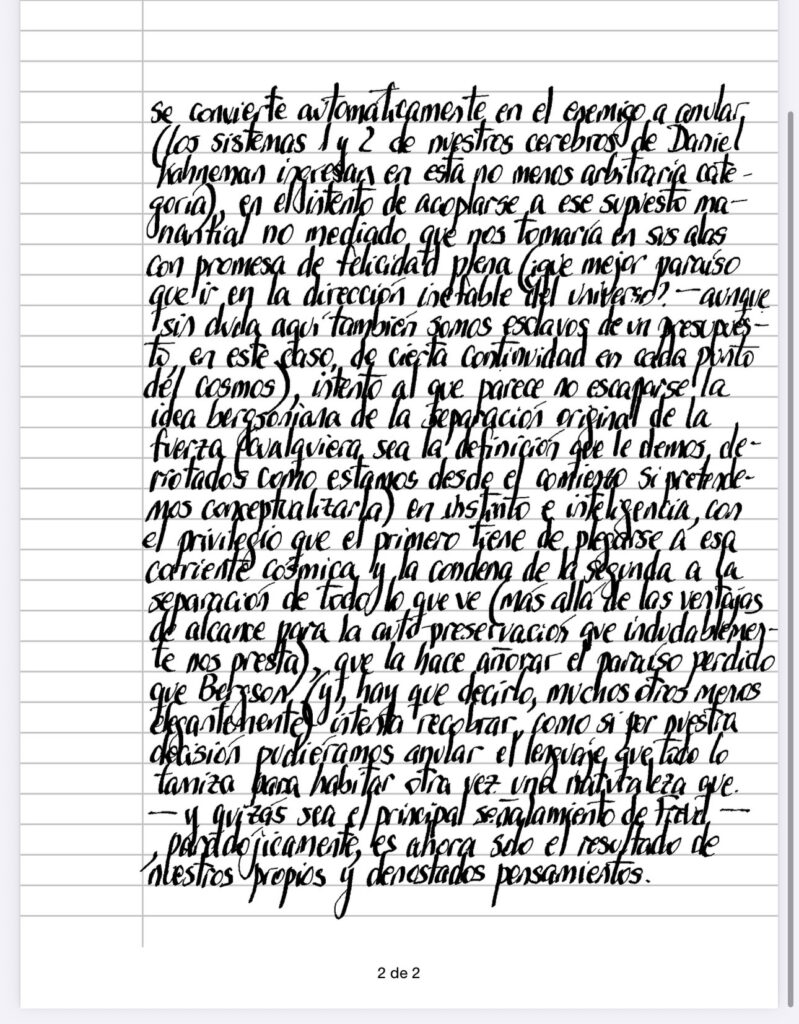 se convierte automáticamente en el enemigo a anular
(los sistemas 1 y 2 de nuestros cerebros de Daniel
Kahneman ingresan en esta no menos arbitraria cate-
goría), en el intento de acoplarse a ese supuesto ma-
nantial no mediado que nos tomaría en sus alas
con promesa de felicidad plena (¡qué mejor paraíso
que ir en la dirección inefable del universo? — aunque
sin duda aquí también somos esclavos de un presupues-
to, en este caso, de cierta continuidad en cada punto
del cosmos), intento al que parece no escaparse la
idea bergsoniana de la separación original de la
fuerza (cualquiera sea la definición que le demos, de-
rrotados como estamos desde el comienzo si pretende-
mos conceptualizarla) en instinto e inteligencia, con
el privilegio que el primero tiene de plegarse a esa
corriente cósmica y la condena de la segunda a la
separación de todo lo que ve (más allá de las ventajas
de alcance para la auto-preservación que indudablemen-
te nos presta), que la hace añorar el paraíso perdido
que Bergson (y, hay que decirlo, muchos otros menos
elegantemente) intenta recobrar, como si por nuestra
decisión pudiéramos anular el lenguaje que todo lo
tamiza para habitar otra vez una naturaleza que
— y quizás sea el principal señalamiento de Freud —
, paradójicamente, es ahora solo el resultado de
nuestros propios y denostados pensamientos.
2 de 2